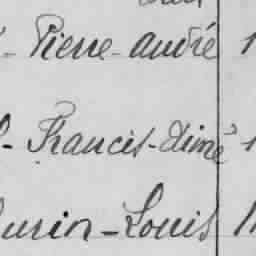 - Pierre - André 1
- Francis - Aimé 1
urin - Louis 1